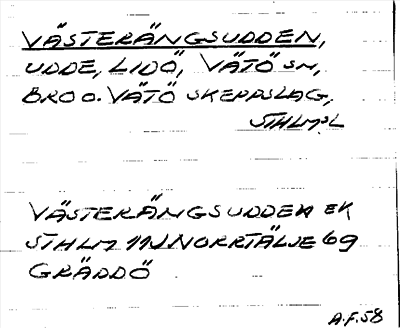 VÄSTERÄNGSUDDEN,
UDDE, LIDÖ, VÄTÖ SN,
BRO O. VÄTÖ SKEPPSLAG,
STHLMSL
VÄSTERÄNGSUDDEN EK
STHLM 11J NORRTÄLJE 69
GRÄDDÖ
A.F. 58